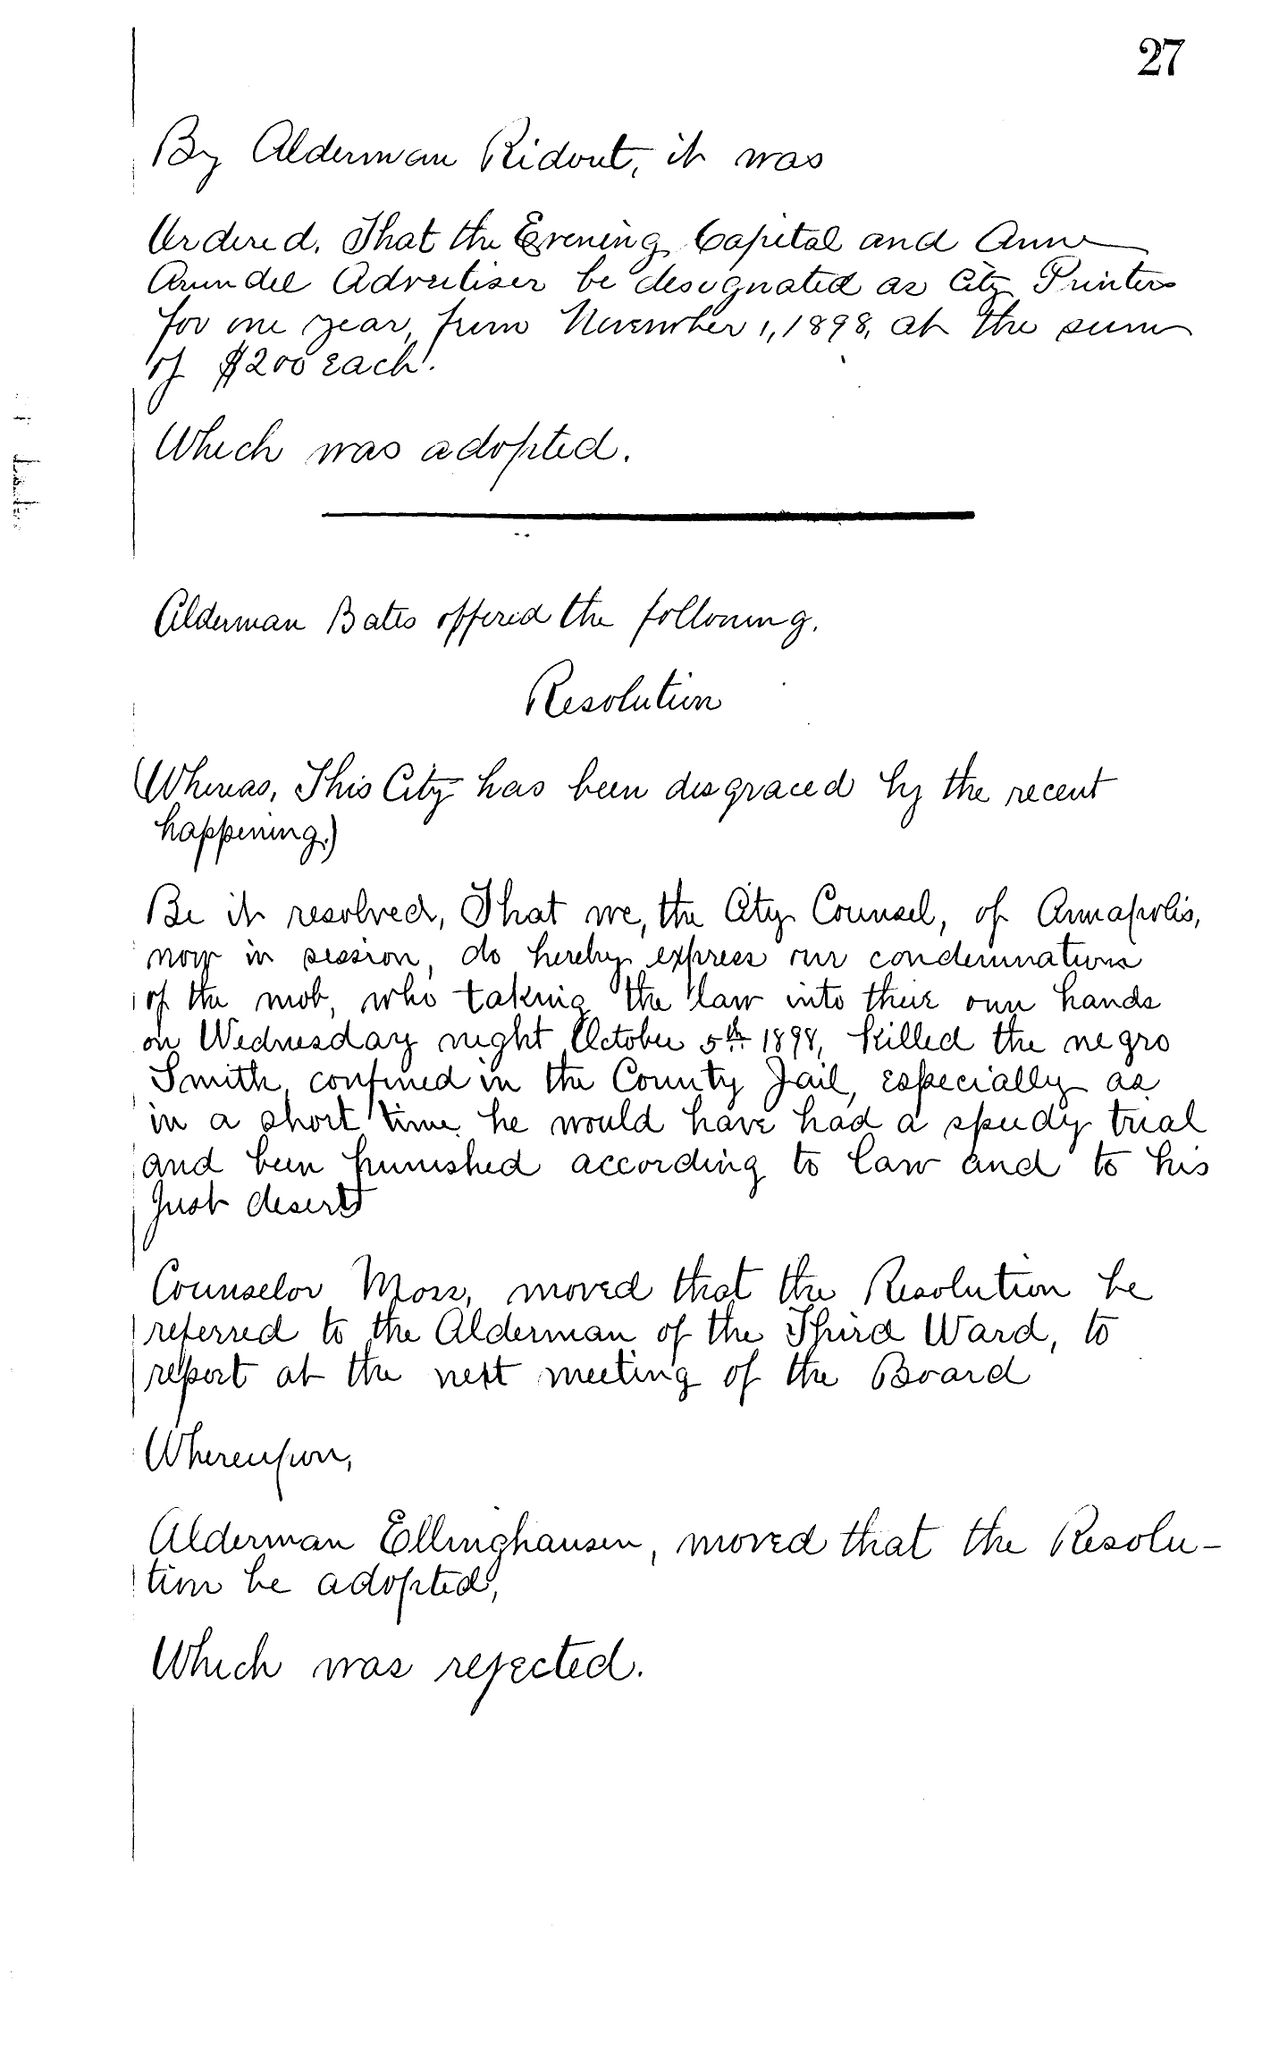 27
By Alderman Ridout, it was
Ordered. That the Evening Capital and Anne
Arundel Advertiser be designated as City Printers
for one year, from November 1, 1898, at the sum
of $200 Each.
Which was adopted.
Alderman Bates offered the following.
Resolution
(Whereas, This City has been disgraced by the recent
happening.)
Be it resolved, That we, the City Counsel, of Annapolis,
now in session, do hereby express our condemnation
of the mob, who taking the law into their own hands
on Wednesday night October 5th 1898, killed the negro
Smith, confined in the County Jail, especially as
in a short time he would have had a speedy trial
and been punished according to law and to his
just deserts
Counselor Moss, moved that the Resolution be
referred to the Alderman of the Third Ward, to
report at the next meeting of the Board
Whereupon,
Alderman Ellinghausen, moved that the Resolu-
tion be adopted,
Which was rejected.